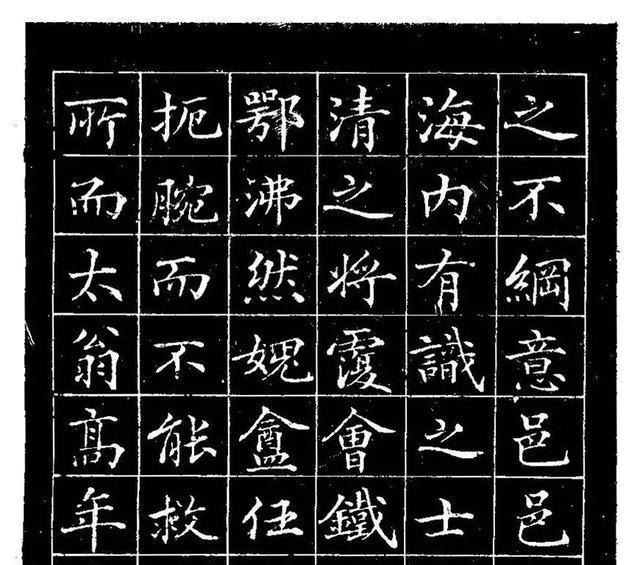 之不綱意邑邑
海内有識之士
清之將覆會鐵
鄂沸然媿盦任
扼腕而不能救
所而太翁髙年